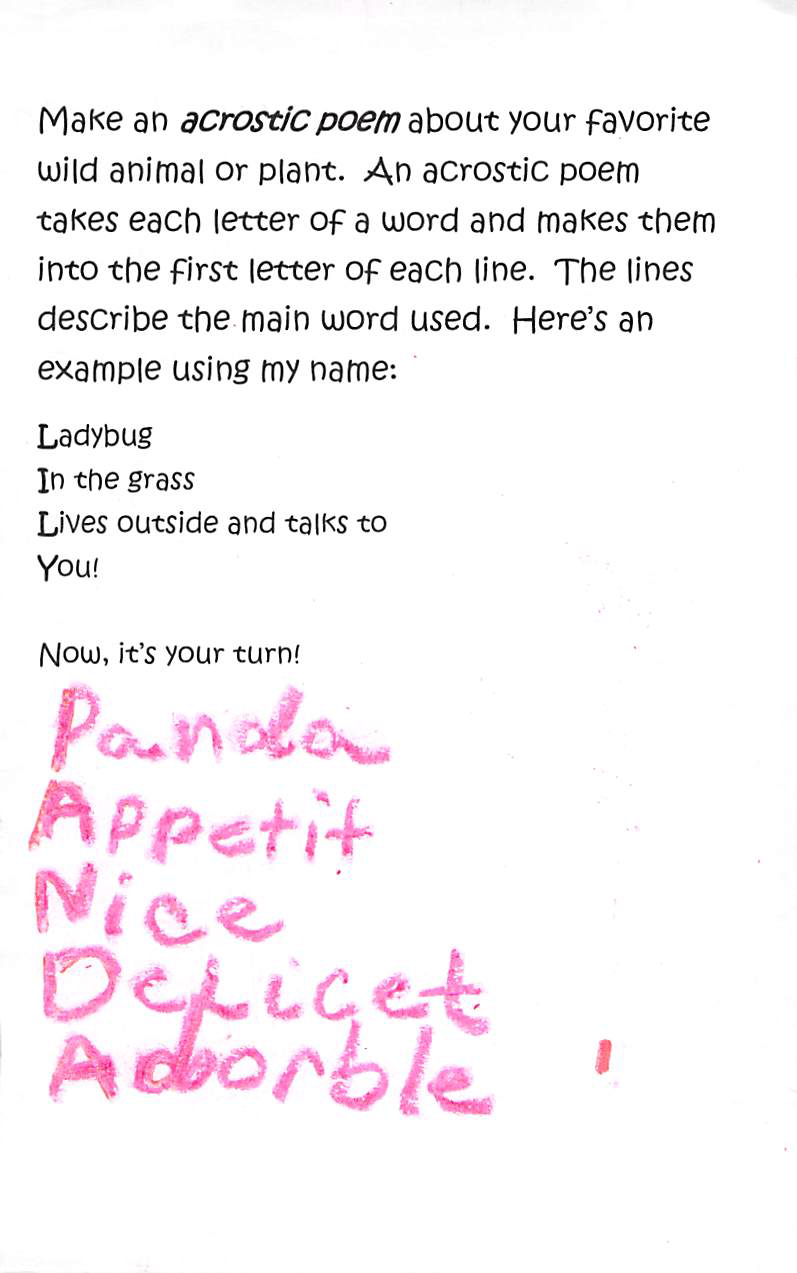 Make an acrostic poem about your favorite
wild animal or plant. An acrostic poem
takes each letter of a word and makes them
into the first letter of each line. The lines
describe the main word used. Here's an
example using my name:
Ladybug
In the grass
Lives outside and talks to
You!
Now, it's your turn!
Panda
Appetit
Nice
Delicet
Adorble